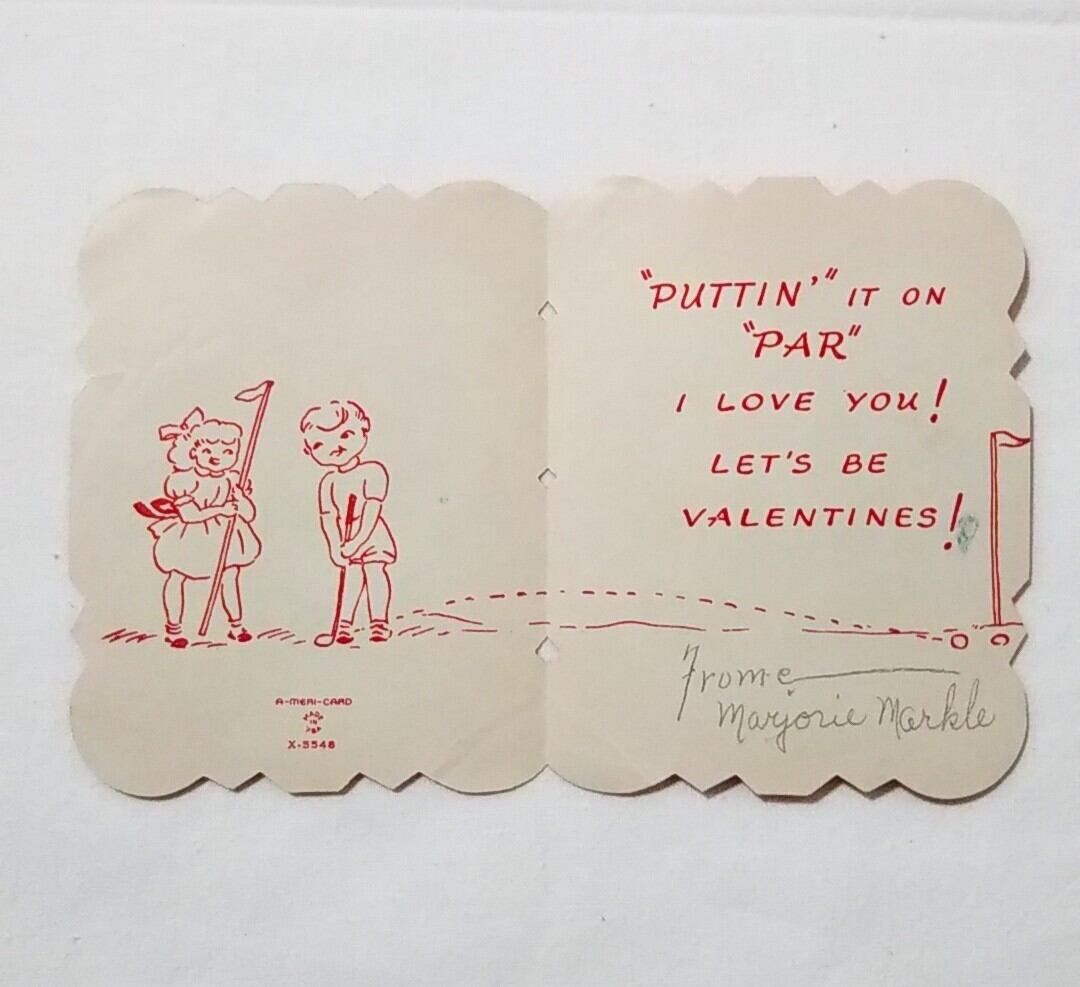 "PUTTIN'" IT ON
"PAR"
I LOVE YOU!
LET'S BE
VALENTINES!
From
Marjorie Markle
A-MERI-CARD
MADE
IN
USA
X-5548